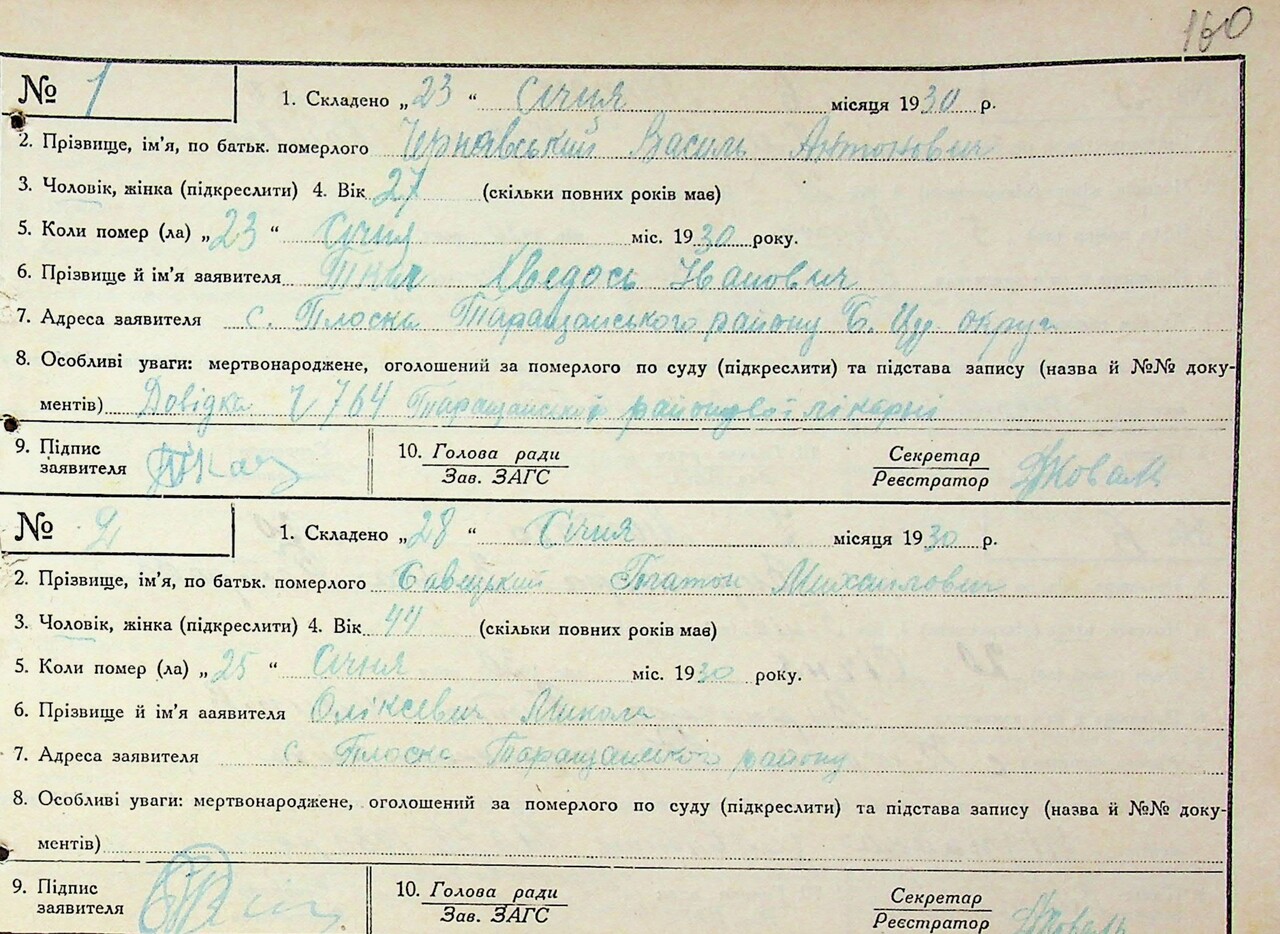 160
№ 1
1. Складено „23“ Січня місяця 1930 р.
2. Прізвище, ім'я, по батьк. померлого Чернявський Василь Антонович
3. Чоловік, жінка (підкреслити) 4. Вік 27 (скільки повних років має)
5. Коли помер (ла) „23“ Січня міс. 1930 року.
6. Прізвище й ім'я заявителя Хведось Іванович
7. Адреса заявителя с. Плоска Таращанського району Б. Цер. округи
8. Особливі уваги: мертвонароджене, оголошений за померлого по суду (підкреслити) та підстава запису (назва й №№ доку-
ментів) Довідка Ч 764 Таращанської районової лікарні
9. Підпис
заявителя
10. Голова ради
Зав. ЗАГС
Секретар
Реєстратор Коваль
№ 2
1. Складено „28“ Січня місяця 1930 р.
2. Прізвище, ім'я, по батьк. померлого Савецький Платон Михайлович
3. Чоловік, жінка (підкреслити) 4. Вік 44 (скільки повних років має)
5. Коли помер (ла) „25“ Січня міс. 1930 року.
6. Прізвище й ім'я аявителя Оліксевич Микола
7. Адреса заявителя с. Плоска Таращанського району
8. Особливі уваги: мертвонароджене, оголошений за померлого по суду (підкреслити) та підстава запису (назва й №№ доку-
ментів)
9. Підпис
заявителя
10. Голова ради
Зав. ЗАГС
Секретар
Реєстратор Коваль